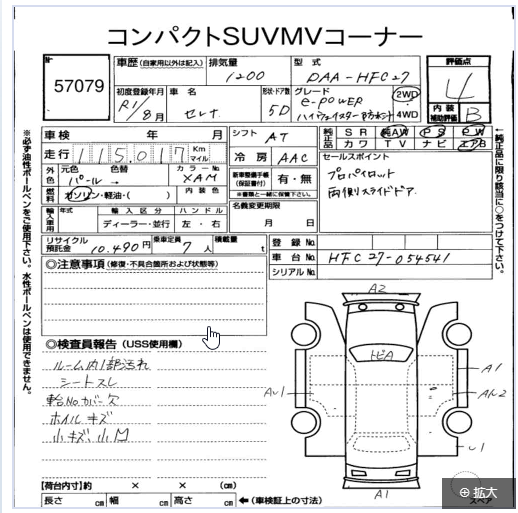 コンパクトSUVMVコーナー
No.
57079
車歴(自家用以外は記入)
排気量
1200
型式
DAA-HFC27
評価点
4
初度登録年月
R1/8月
車名
セレナ
形状・ドア数
5D
グレード
e-power
ハイウェイスターV防水シート
2WD
4WD
内装
補助評価
B
※必ず油性ボールペンをご使用下さい。水性ボールペンは使用できません。
車検 年 月
シフト
AT
純正品
SR 純AW PS PW
カワ TV ナビ エアB
←純正品に限り該当に○をつけて下さい。
走行
115,017
Km
マイル
冷房
AAC
セールスポイント
プロパイロット
両側スライドドア.
外色
元色
パール→
色替
カラーNo.
XAM
新車整備手帳
(保証書付)
有・無
※車書と一緒に保管下さい。
燃料
ガソリン・軽油・( )
内装色
名義変更期限
月 日
輸入車用
年式
輸入区分
ディーラー・並行
ハンドル
左・右
リサイクル
預託金
10.490円
乗車定員
7人
積載量
t
登録No.
車台No.
HFC27-054541
シリアルNo.
◎注意事項(修復・不具合箇所および状態等)
◎検査員報告(USS使用欄)
ルーム内1部汚れ
シートスレ
輪No.カバー欠
ホイルキズ
小キズ、小凹
A2
トビA
A1
AU1
U1
A1
【荷台内寸】約 × × (cm)
長さ cm 幅 cm 高さ cm ←(車検証上の寸法)
スペア
拡大